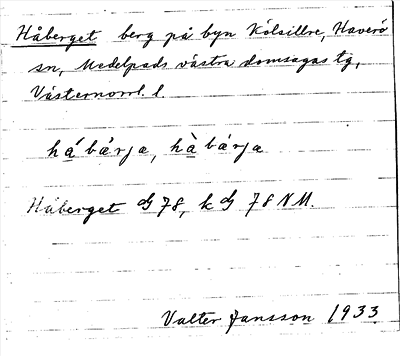 Håberget berg på byn Kölsillre, Haverö
sn, Medelpads västra domsagas tg,
Västernorrl. l
hábárja, hàbárja
Håberget G 78, k G 78 NM.
Valter Jansson 1933